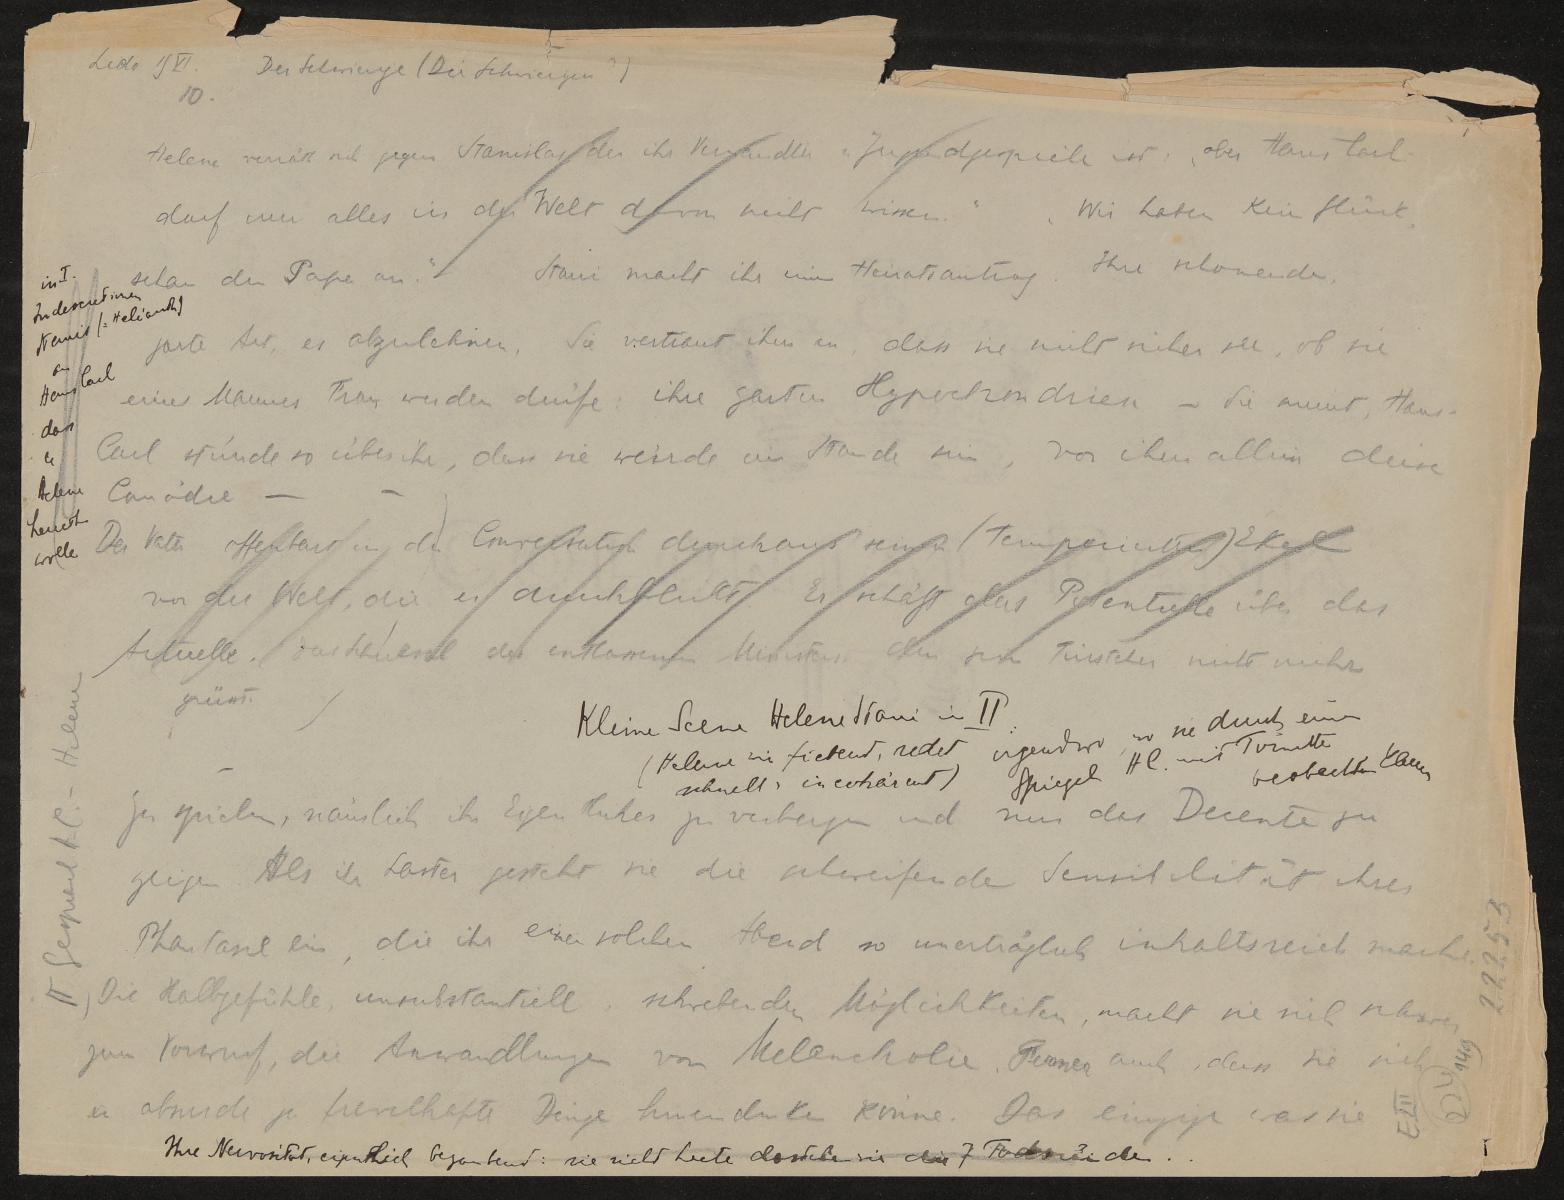 Lido 9 VI. Der Schwierige (Die Schwierigen?)
10.
Helene verräth sich gegen Stanislas der ihr Verwandter u Jugendgespiele ist: „aber Hans Carl
darf um alles in der Welt davon nicht wissen." „Wir haben kein Glück,
schau den Papa an." Stani macht ihr einen Heiratsantrag. Ihre schonende,
zarte Art, es abzulehnen. Sie vertraut ihm an, dass sie nicht sicher sei, ob sie
eines Mannes Frau werden dürfe: ihre zarten Hypochondrien – Sie meint, Hans-
Carl stünde so über ihr, dass sie würde im Stande sein, vor ihm allein diese
Comödie — –
Der Vater offenbart in der Conversation durchaus seinen (temperierten) Ekel
vor der Welt, die er durchblickt. Er schätzt das Potentielle über das
Actuelle. des entlassenen Ministers den sein Türsteher nicht mehr
grüsst.
in I.
Indiscretionen
Neuis (: Helianth)
an
Hans Carl
dass
er
Helene
wolle
Kleine Scene Helene Stani in II.
(Helene wie fiebernd, redet
schnell, incohärent)
irgendwo, wo sie durch einen
Spiegel H C. mit Toinette
beobachten kann
zu spielen, nämlich ihr Eigentliches zu verbergen und nur das Decente zu
zeigen. Als ihr Laster gesteht sie die schweifende Sensibilität ihrer
Phantasie ein, die ihr einen solchen Abend so unerträglich inhaltsreich mache.
Die Halbgefühle, unsubstantiell, schwebenden Möglichkeiten, macht sie sich schwer
zum Vorwurf, die Anwandlungen von Melancholie. Ferner auch, dass sie sich
in absurde ja frevelhafte Dinge hineindenken könne. Das einzige was sie
Ihre Nervosität, eigentlich bezaubernd: sie sieht heute die 7 Todsünden..
II Gespräch H.C. – Helene
E III
149
22253